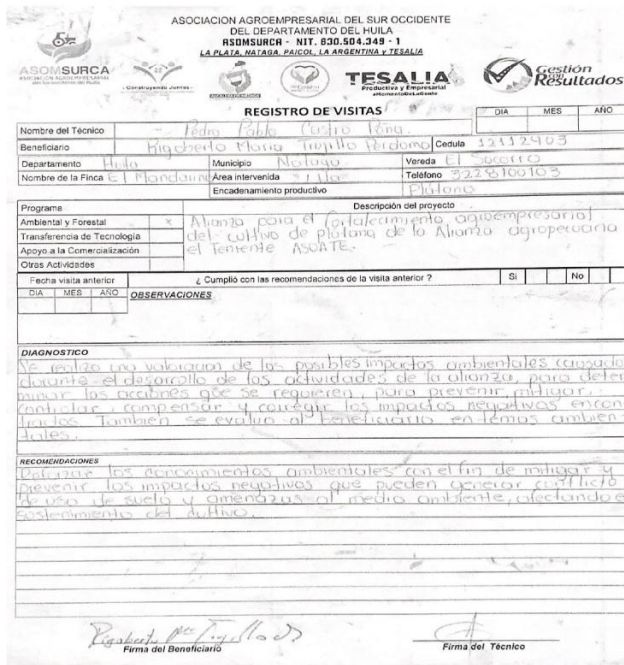 ASOCIACION AGROEMPRESARIAL DEL SUR OCCIDENTE
DEL DEPARTAMENTO DEL HUILA
ASOMSURCA - NIT. 830.504.349 - 1
LA PLATA, NATAGA, PAICOL, LA ARGENTINA y TESALIA
ASOMSURCA
- Construyendo Juntos -
TESALIA
Productiva y Empresarial
Gestión con Resultados
REGISTRO DE VISITAS
DIA MES AÑO
Nombre del Técnico Pedro Pablo Castro Peña
Beneficiario Rigoberto Maria Trujillo Perdomo Cedula 12112403
Departamento Huila Municipio Nataga Vereda El Socorro
Nombre de la Finca El Área intervenida Teléfono 3228100103
Encadenamiento productivo Platano
Programa Descripción del proyecto
Ambiental y Forestal x Alianza para el fortalecimiento agroempresarial
Transferencia de Tecnología del cultivo de platano de la Alianza agropecuaria
Apoyo a la Comercialización el Teniente ASOATE.
Otras Actividades
Fecha visita anterior ¿ Cumplió con las recomendaciones de la visita anterior ? Si No
DIA MES AÑO OBSERVACIONES
DIAGNOSTICO
Se realizo una valoracion de los posibles impactos ambientales causado
durante el desarrollo de las actividades de la alianza, para deter
minar las acciones que se requieren, para prevenir, mitigar,
controlar, compensar y corregir los impactos negativos encon
trados. También se evaluo al beneficiario en temas ambien
tales.
RECOMENDACIONES
los conocimientos ambientales con el fin de mitigar y
prevenir los impactos negativos que pueden generar conflicto
de uso de suelo y amenazas al medio ambiente, afectando e
sostenimiento del cultivo.
Firma del Beneficiario Firma del Técnico